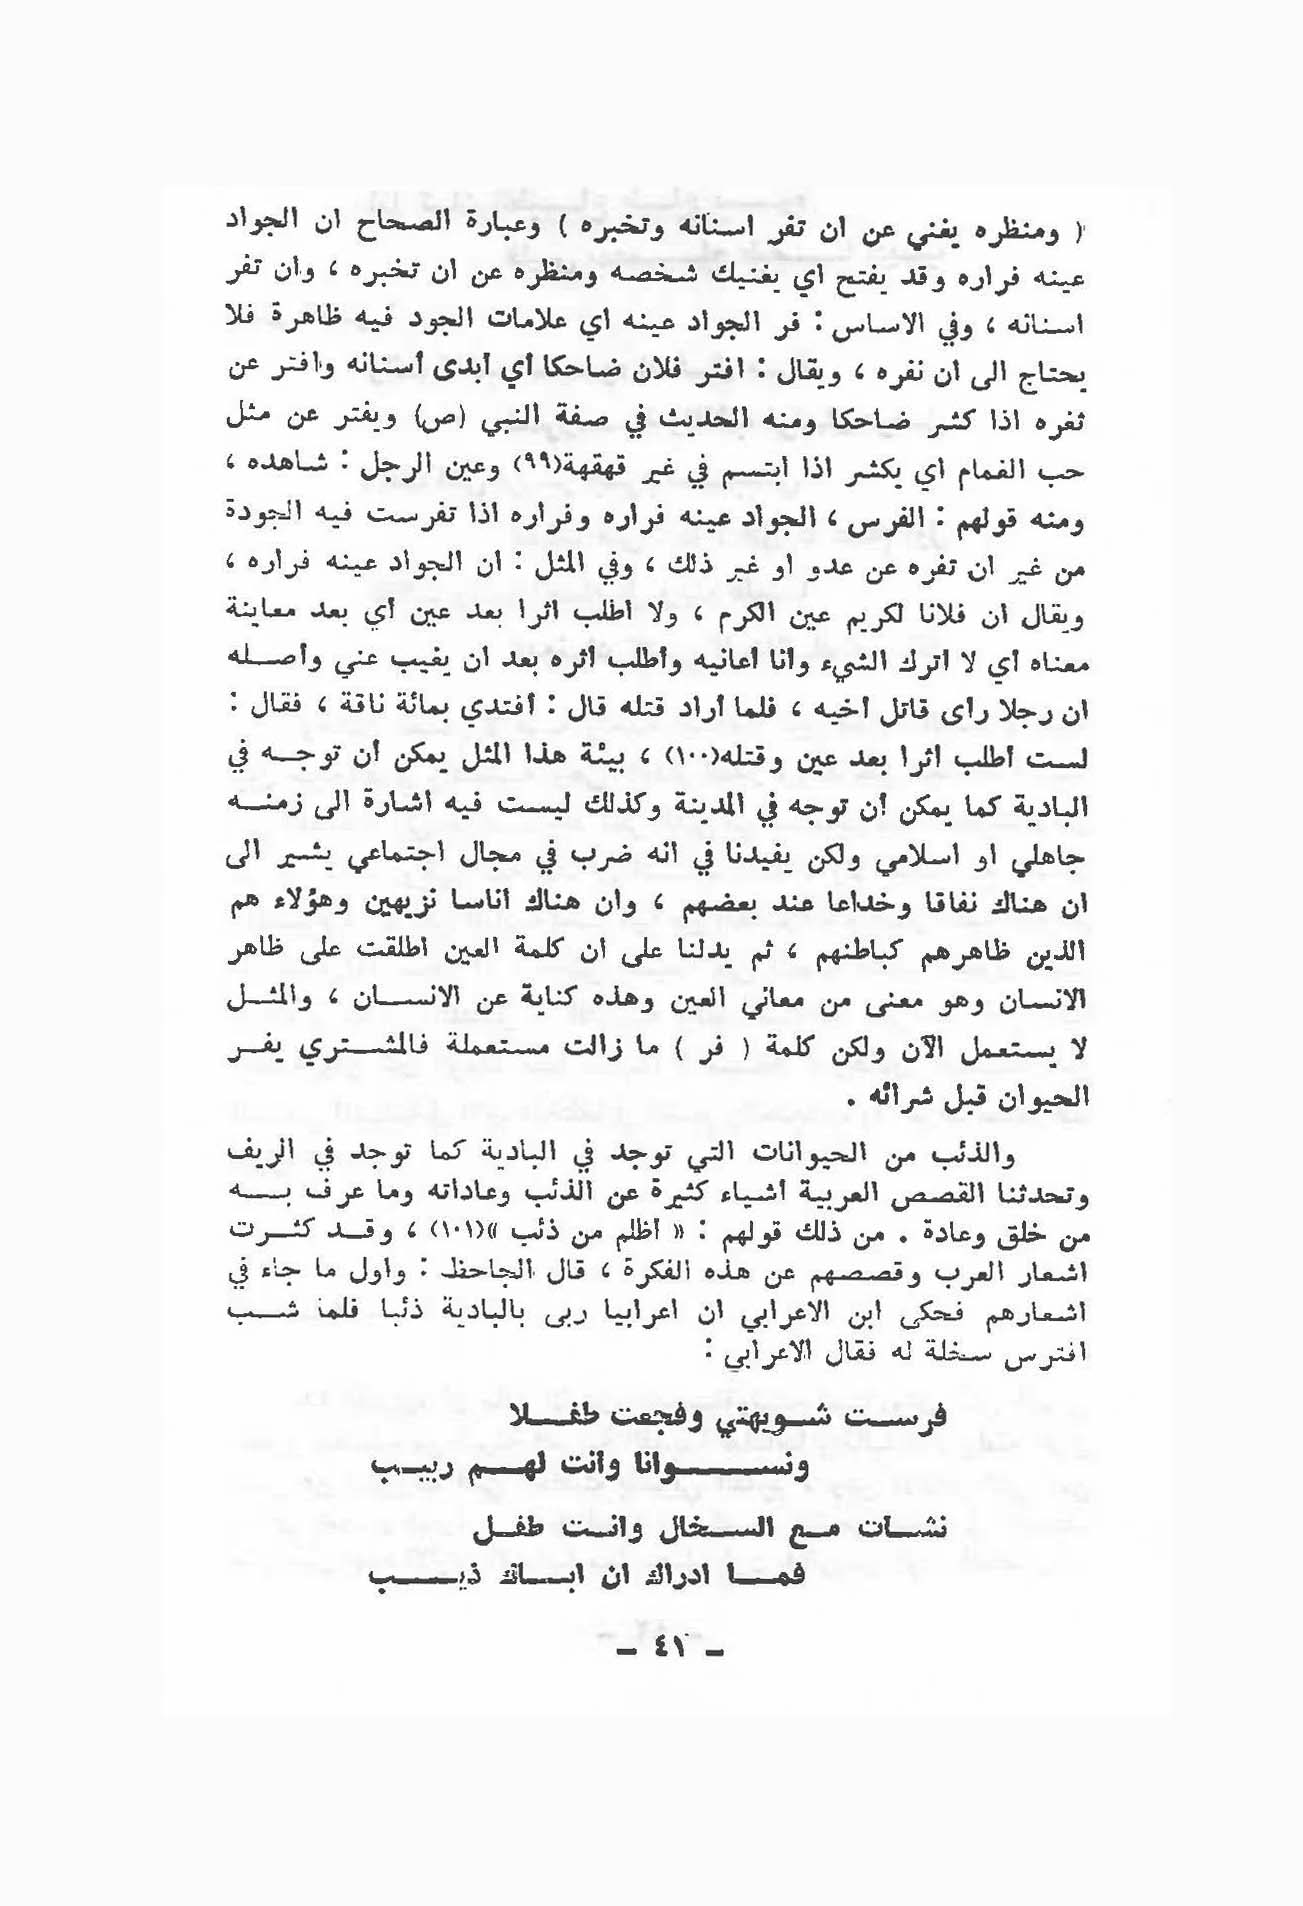 ( ومنظره يغني عن ان تفر اسنانه وتخبره ) وعبارة الصحاح ان الجواد
عينه فراره وقد يفتح اي يغنيك شخصه ومنظره عن ان تخبره ، وان تفر
اسنانه ، وفي الاساس : فر الجواد عينه اي علامات الجود فيه ظاهرة فلا
يحتاج الى ان نفره ، ويقال : افتر فلان ضاحكا أي أبدى أسنانه وافتر عن
ثغره اذا كشر ضاحكا ومنه الحديث في صفة النبي (ص) ويفتر عن مثل
حب الغمام اي يكشر اذا ابتسم في غير قهقهة(٩٩) وعين الرجل : شاهده ،
ومنه قولهم : الفرس ، الجواد عينه فراره وفراره اذا تفرست فيه الجودة
من غير ان تفره عن عدو او غير ذلك ، وفي المثل : ان الجواد عينه فراره ،
ويقال ان فلانا لكريم عين الكرم ، ولا أطلب اثرا بعد عين أي بعد معاينة
معناه أي لا اترك الشيء وأنا أعانيه وأطلب أثره بعد ان يغيب عني وأصله
ان رجلا رأى قاتل أخيه ، فلما أراد قتله قال : أفتدي بمائة ناقة ، فقال :
لست أطلب أثرا بعد عين وقتله(١٠٠) ، بيئة هذا المثل يمكن أن توجه في
البادية كما يمكن أن توجه في المدينة وكذلك ليست فيه اشارة الى زمنه
جاهلي او اسلامي ولكن يفيدنا في انه ضرب في مجال اجتماعي يشير الى
ان هناك نفاقا وخداعا عند بعضهم ، وان هناك اناسا نزيهين وهؤلاء هم
الذين ظاهرهم كباطنهم ، ثم يدلنا على ان كلمة العين اطلقت على ظاهر
الانسان وهو معنى من معاني العين وهذه كناية عن الانسان ، والمثل
لا يستعمل الآن ولكن كلمة ( فر ) ما زالت مستعملة فالمشتري يفر
الحيوان قبل شرائه .
والذئب من الحيوانات التي توجد في البادية كما توجد في الريف
وتحدثنا القصص العربية أشياء كثيرة عن الذئب وعاداته وما عرف به
من خلق وعادة . من ذلك قولهم : « أظلم من ذئب »(١٠١) ، وقد كثرت
اشعار العرب وقصصهم عن هذه الفكرة ، قال الجاحظ : واول ما جاء في
اشعارهم فحكى ابن الاعرابي ان اعرابيا ربى بالبادية ذئبا فلما شب
افترس سخلة له فقال الاعرابي :
فرست شويهتي وفجعت طفلا
ونسوانا وانت لهم ربيب
نشات مع السخال وانت طفل
فما ادراك ان اباك ذيب
– ٤١ –